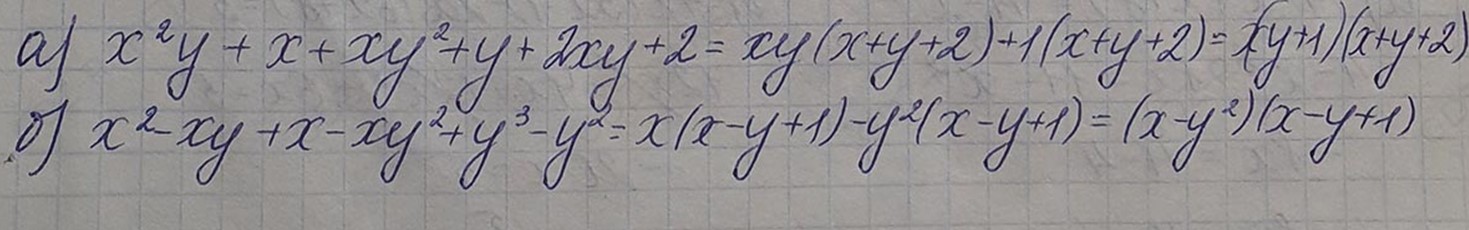 а) x²y + x + xy² + y + 2xy + 2 = xy(x+y+2)+1(x+y+2) = (xy+1)(x+y+2)
б) x² - xy + x - xy² + y³ - y² = x(x-y+1) - y²(x-y+1) = (x-y²)(x-y+1)